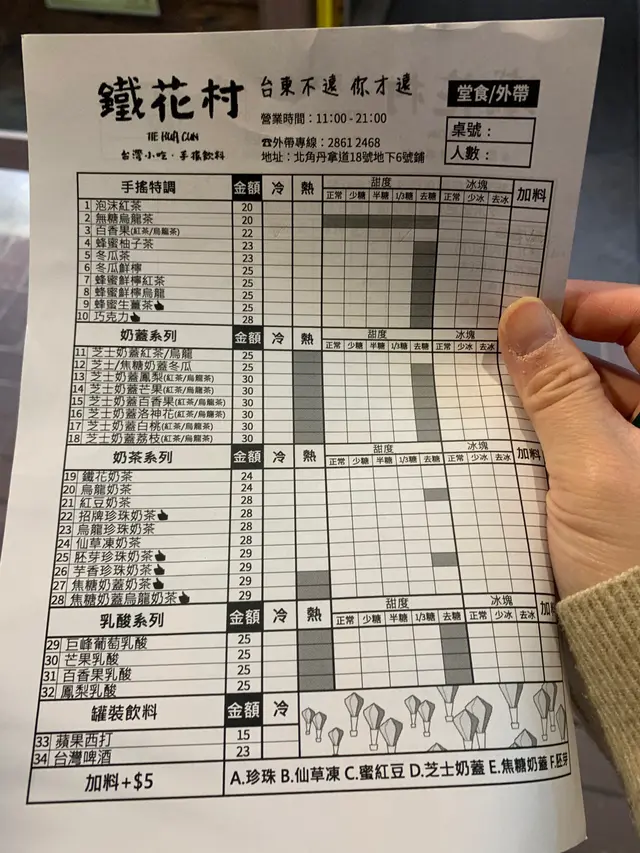 鐵花村
TIE HUA CUN
台灣小吃·手搖飲料
台東不遠 你才遠
營業時間:11:00-21:00
☎外帶專線:2861 2468
地址:北角丹拿道18號地下6號鋪
堂食/外帶
桌號:
人數:
手搖特調 金額 冷 熱 甜度 冰塊 加料
正常 少糖 半糖 1/3糖 去糖 正常 少冰 去冰
1 泡沫紅茶 20
2 無糖烏龍茶 20
3 百香果(紅茶/烏龍茶) 22
4 蜂蜜柚子茶 23
5 冬瓜茶 23
6 冬瓜鮮檸 25
7 蜂蜜鮮檸紅茶 25
8 蜂蜜鮮檸烏龍 25
9 蜂蜜生薑茶 25
10 巧克力 28
奶蓋系列 金額 冷 熱 甜度 冰塊
正常 少糖 半糖 1/3糖 去糖 正常 少冰 去冰
11 芝士奶蓋紅茶/烏龍 25
12 芝士/焦糖奶蓋冬瓜 25
13 芝士奶蓋鳳梨(紅茶/烏龍茶) 30
14 芝士奶蓋芒果(紅茶/烏龍茶) 30
15 芝士奶蓋百香果(紅茶/烏龍茶) 30
16 芝士奶蓋洛神花(紅茶/烏龍茶) 30
17 芝士奶蓋白桃(紅茶/烏龍茶) 30
18 芝士奶蓋荔枝(紅茶/烏龍茶) 30
奶茶系列 金額 冷 熱 甜度 冰塊 加料
正常 少糖 半糖 1/3糖 去糖 正常 少冰 去冰
19 鐵花奶茶 24
20 烏龍奶茶 24
21 紅豆奶茶 28
22 招牌珍珠奶茶 28
23 烏龍珍珠奶茶 28
24 仙草凍奶茶 28
25 胚芽珍珠奶茶 29
26 芋香珍珠奶茶 29
27 焦糖奶蓋奶茶 29
28 焦糖奶蓋烏龍奶茶 29
乳酸系列 金額 冷 熱 甜度 冰塊 加料
正常 少糖 半糖 1/3糖 去糖 正常 少冰 去冰
29 巨峰葡萄乳酸 25
30 芒果乳酸 25
31 百香果乳酸 25
32 鳳梨乳酸 25
罐裝飲料 金額 冷
33 蘋果西打 15
34 台灣啤酒 23
加料+$5 A.珍珠 B.仙草凍 C.蜜紅豆 D.芝士奶蓋 E.焦糖奶蓋 F.胚芽